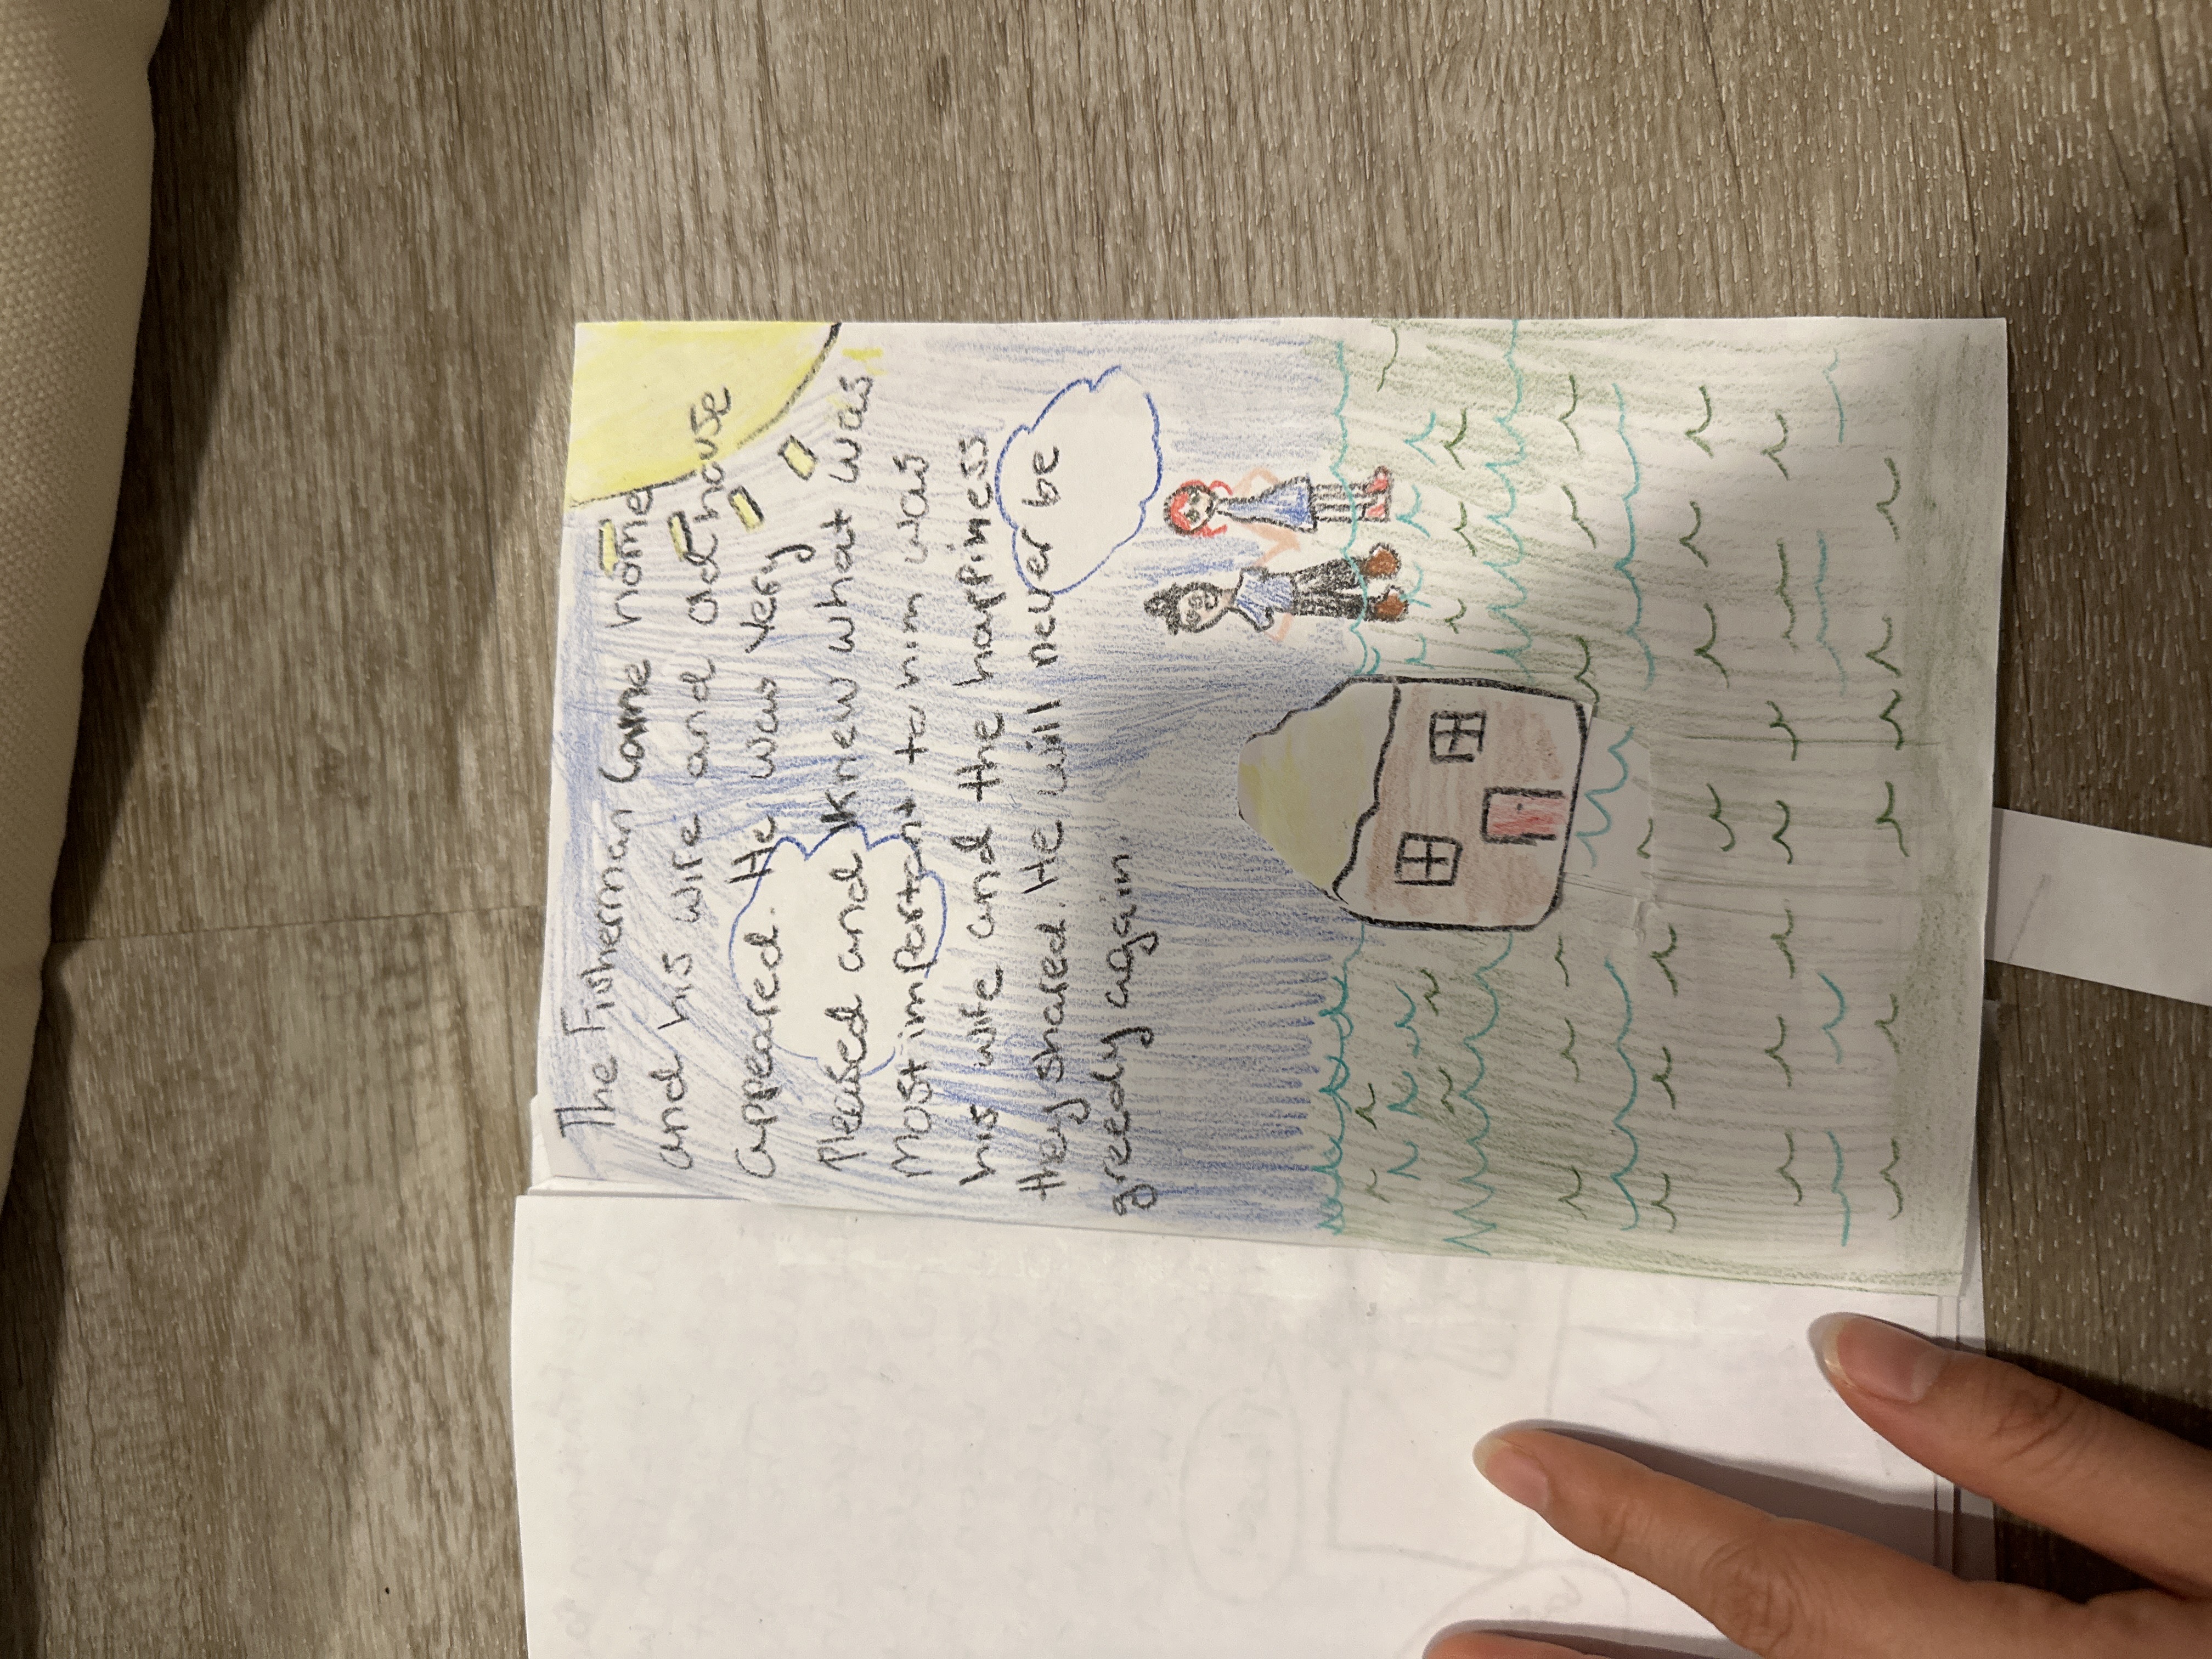 The Fisherman Came home
and his wife and old house
appeared. He was very
Pleased and Knew what was
Most important to him was
his wife and the happiness
they shared. He will never be
greedy again.